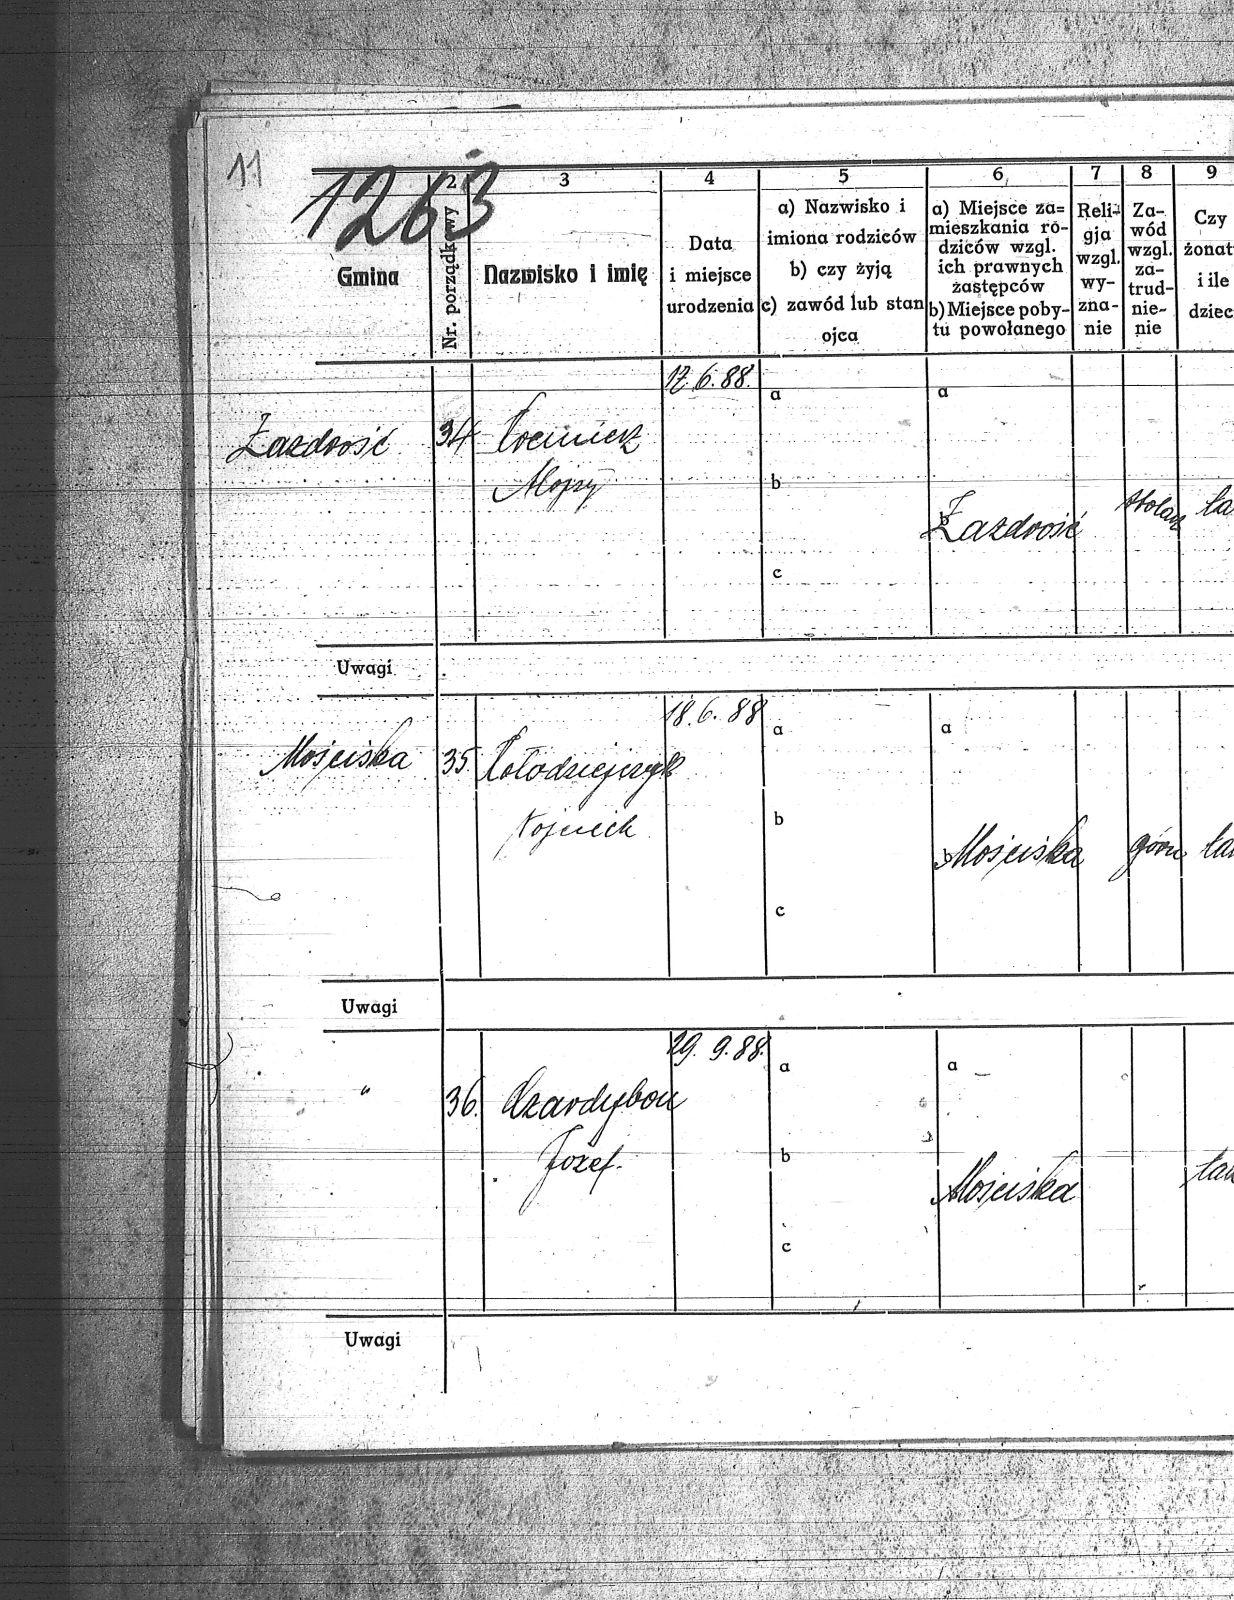 11
1263
2
3
4
5
6
7
8
9
Gmina
Nr. porządkowy
Nazwisko i imię
Data
i miejsce
urodzenia
a) Nazwisko i
imiona rodziców
b) czy żyją
c) zawód lub stan
ojca
a) Miejsce za=
mieszkania ro-
dziców wzgl.
ich prawnych
zastępców
b) Miejsce poby-
tu powołanego
Reli-
gja
wzgl.
wy-
zna-
nie
Za-
wód
wzgl.
za-
trud-
nie-
nie
Czy
żonat
i ile
dziec
Zazdrość
34
Alojzy
17.6.88.
a
b
c
a
b
Zazdrość
stolarz
ta
Uwagi
Mościska
35.
Kołodziejczyk
Wojciech
18.6.88
a
b
c
a
b
Mościska
górn
Uwagi
"
36.
Czardybon
Józef.
29.9.88.
a
b
c
a
Mościska
Uwagi